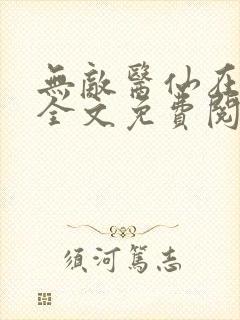 無敵醫仙在
全文免費閱
須河篤志